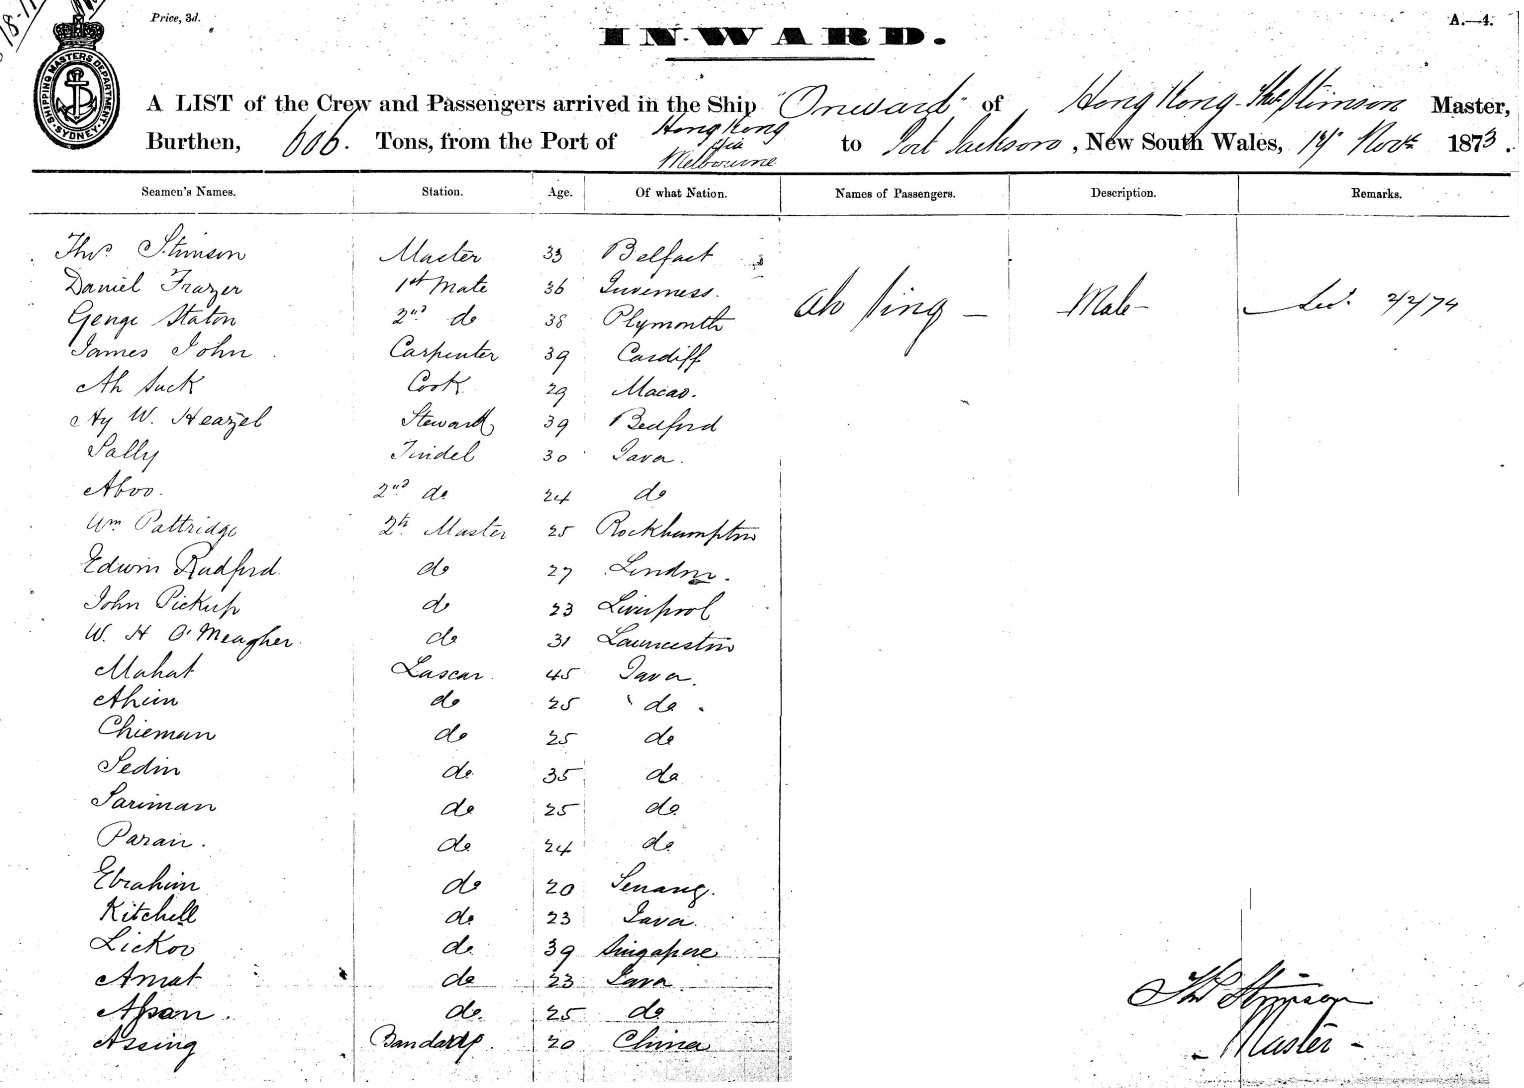 18-11
Price, 3d.
A.—4.
INWARD.
SHIPPING MASTERS DEPARTMENT
SYDNEY
A LIST of the Crew and Passengers arrived in the Ship "Onward" of Hong Kong Thos Stimson Master,
Burthen, 606. Tons, from the Port of Hong Kong via Melbourne to Port Jackson, New South Wales, 14 Novr 1873.
Seamen's Names. Station. Age. Of what Nation. Names of Passengers. Description. Remarks.
Thos. Stimson Master 33 Belfast
Daniel Frazer 1st Mate 36 Inverness.
George Staton 2nd do 38 Plymouth
Ah Sing — Male — 2/2/74
James John Carpenter 39 Cardiff
Ah Suck Cook 29 Macao.
Hy W. Heazel Steward 39 Bedford
Sally Tindel 30 Java.
Aboo. 2nd do 24 do
Wm Pattridge Master 25 Rockhampton
Edwin Radford do 27 London.
John Pickup do 23 Liverpool
W. H O'Meagher. do 31 Launceston
Mahat Lascar. 45 Java.
Ahim do 25 do.
Chieman do 25 do
Sedin do 35 do
Sariman do 25 do
Parain. do 24 do
Ebrahim do 20
Kitchell do 23 Java
Lickov do 39 Singapore
Amat do 23 Java
Assan. do. 25 do
Assing 20 China
Thos Stimson
- Master -